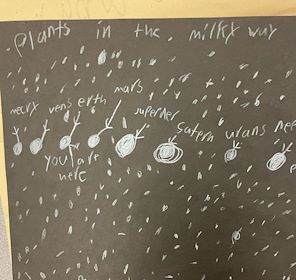 plants in the milky way
mars
mecry vens erth
superner
satern urans nee
you art
here